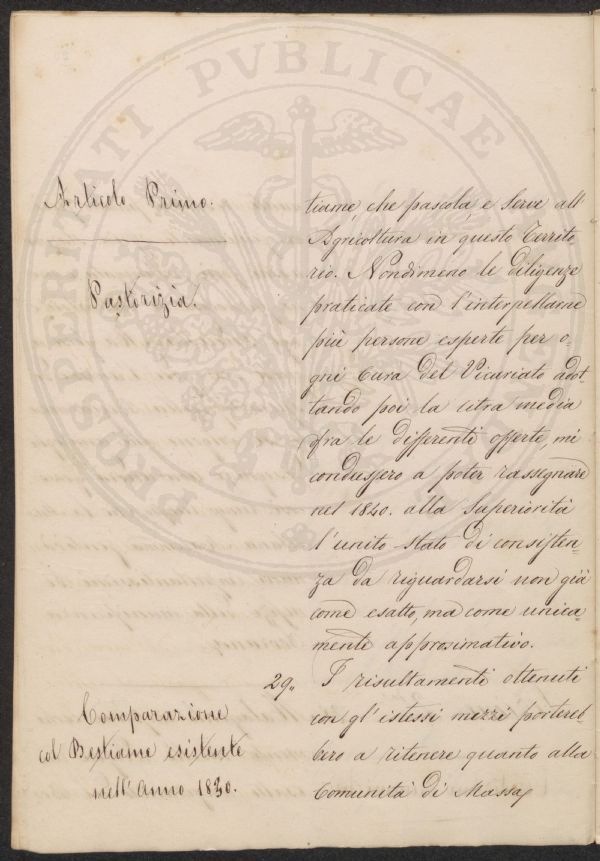 PROSPERITATI PVBLICAE
Articolo Primo.
Pastorizia.
tiame, che pascola, e serve all'
Agricoltura in questo Territo
rio. Nondimeno le diligenze
praticate con l'interpellarne
più persone esperte per o-
gni Cura del Vicariato adot-
tando poi la citra media
fra le differenti offerte, mi
condussero a poter rassegnare
nel 1840. alla Superiorità
l'unito stato di consisten-
za da riguardarsi non già
come esatto, ma come unica-
mente approssimativo.
Comparazione
col Bestiame esistente
nell'Anno 1830.
29„ I risultamenti ottenuti
con gl'istessi mezzi portereb
bero a ritenere quanto alla
Comunità di Massa,